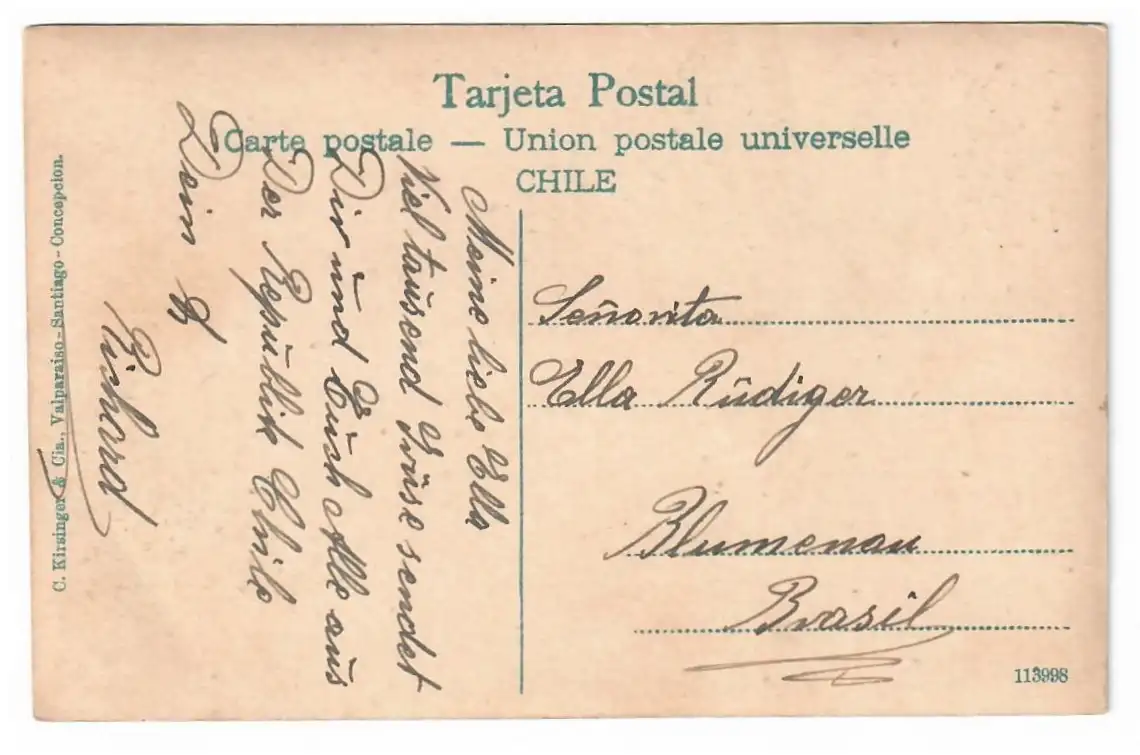 Tarjeta Postal
Carte postale — Union postale universelle
CHILE
Meine liebe Ella
Viel tausend Grüse sendet
Dir und Euch Alle aus
Der Republik Chile
Dein
Richard
Señorita
Ella Rüdiger
Blumenau
Brasil
C. Kirsinger & Cia., Valparaiso - Santiago - Concepcion.
113998